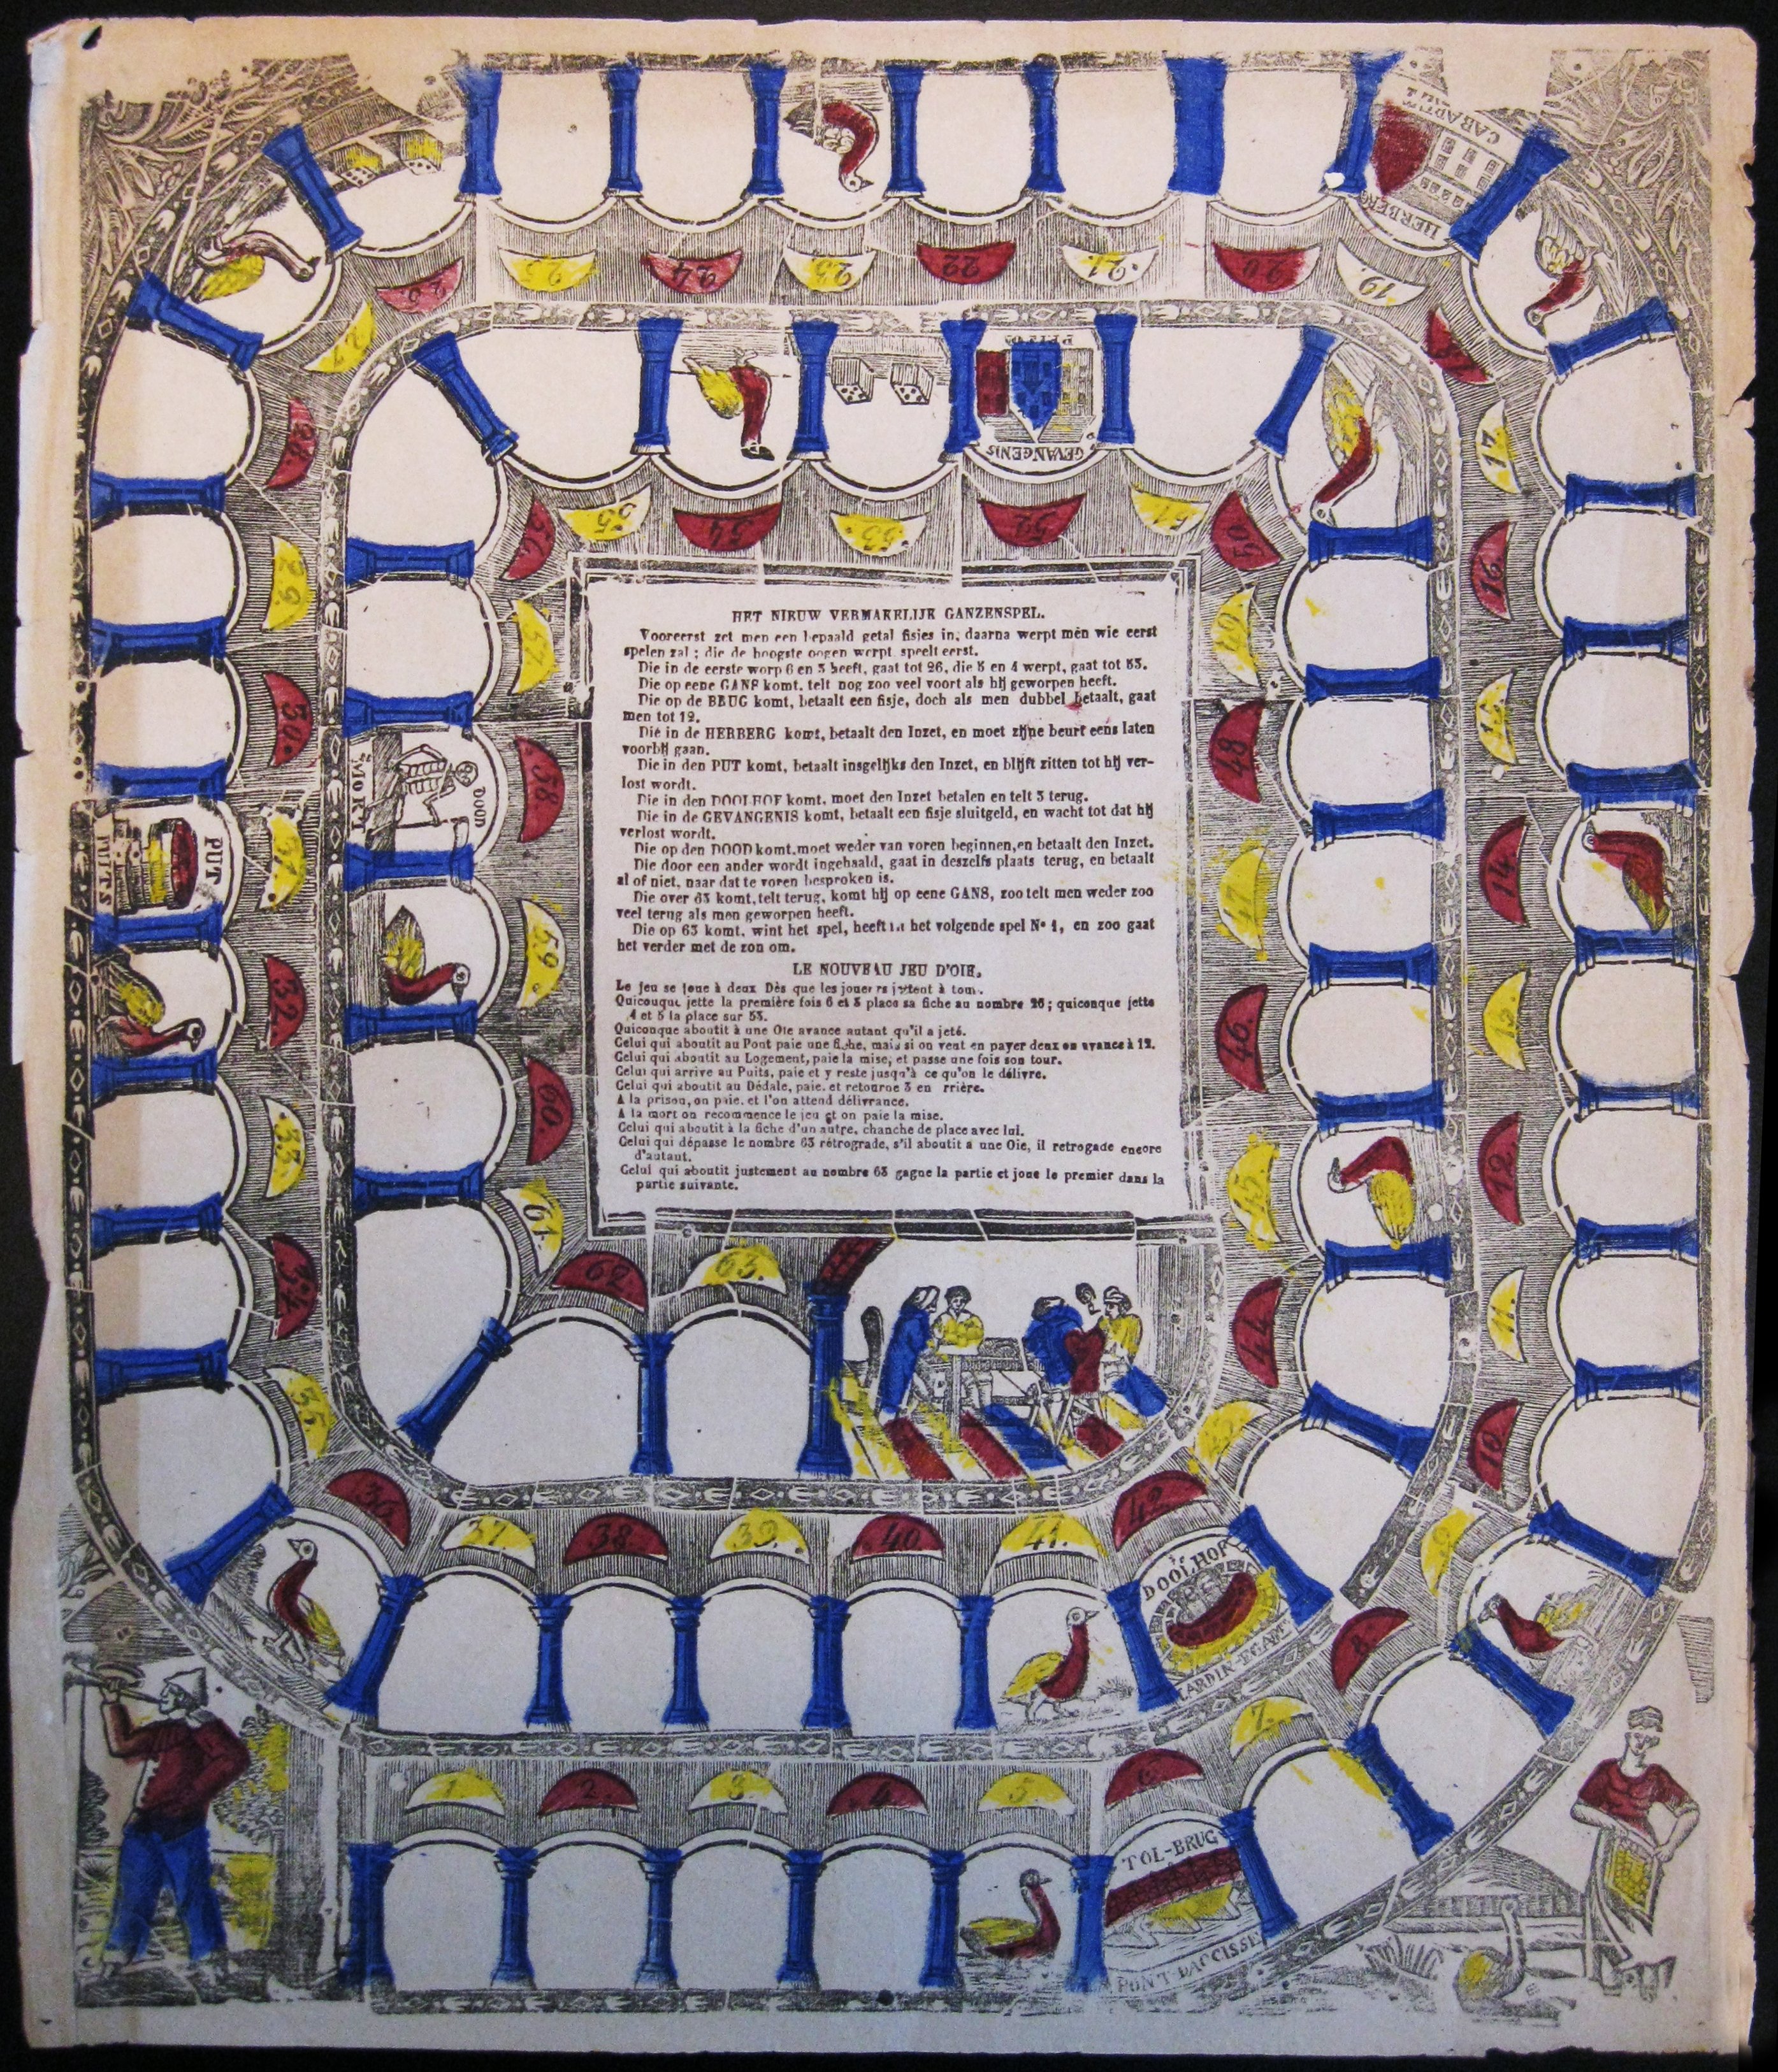 HET NIEUW VERMAKELIJK GANZENSPEL.
Vooreerst zet men een bepaald getal fisjes in, daarna werpt men wie eerst
spelen zal ; die de hoogste oogen werpt speelt eerst.
Die in de eerste worp 6 en 3 heeft, gaat tot 26, die 5 en 4 werpt, gaat tot 53.
Die op eene GANS komt, telt nog zoo veel voort als hij geworpen heeft.
Die op de BRUG komt, betaalt een fisje, doch als men dubbel betaalt, gaat
men tot 12.
Die in de HERBERG komt, betaalt den Inzet, en moet zijne beurt eens laten
voorbij gaan.
Die in den PUT komt, betaalt insgelijks den Inzet, en blijft zitten tot hij ver-
lost wordt.
Die in den DOOLHOF komt, moet den Inzet betalen en telt 3 terug.
Die in de GEVANGENIS komt, betaalt een fisje sluitgeld, en wacht tot dat hij
verlost wordt.
Die op den DOOD komt, moet weder van voren beginnen, en betaalt den Inzet.
Die door een ander wordt ingehaald, gaat in deszelfs plaats terug, en betaalt
al of niet, naar dat te voren besproken is.
Die over 63 komt, telt terug, komt hij op eene GANS, zoo telt men weder zoo
veel terug als men geworpen heeft.
Die op 63 komt, wint het spel, heeft in het volgende spel No 1, en zoo gaat
het verder met de zon om.
LE NOUVEAU JEU D'OIE,
Le jeu se joue à deux Dès que les joueurs jettent à tour.
Quiconque jette la première fois 6 et 3 place sa fiche au nombre 26; quiconque jette
4 et 5 la place sur 53.
Quiconque aboutit à une Oie avance autant qu'il a jeté.
Celui qui aboutit au Pont paie une fiche, mais si on veut en payer deux on avance à 12.
Celui qui aboutit au Logement, paie la mise, et passe une fois son tour.
Celui qui arrive au Puits, paie et y reste jusqu'à ce qu'on le délivre.
Celui qui aboutit au Dédale, paie, et retourne 3 en rrière.
A la prison, on paie, et l'on attend délivrance.
A la mort on recommence le jeu et on paie la mise.
Celui qui aboutit à la fiche d'un autre, chanche de place avec lui.
Celui qui dépasse le nombre 63 rétrograde, s'il aboutit a une Oie, il retrogade encore
d'autant.
Celui qui aboutit justement au nombre 63 gagne la partie et joue le premier dans la
partie suivante.
1
2.
3
4
5
6
TOL-BRUG
PONT D'ACCISSE
7.
8
9
10
11.
12
13
14
15
16.
17
18
19
HERBERG
CABARET
20
21.
22
23.
24
25
26
27
28
29.
30.
31.
PUT
PUITS
32.
33
34
35
36
37
38
39.
40.
41.
42
DOOLHOF
43
44
45
46.
47
48
49
50
51
52
GEVANGENIS
53.
54
55
56
57
58
DOOD
MORT
59
60.
61.
62
63.